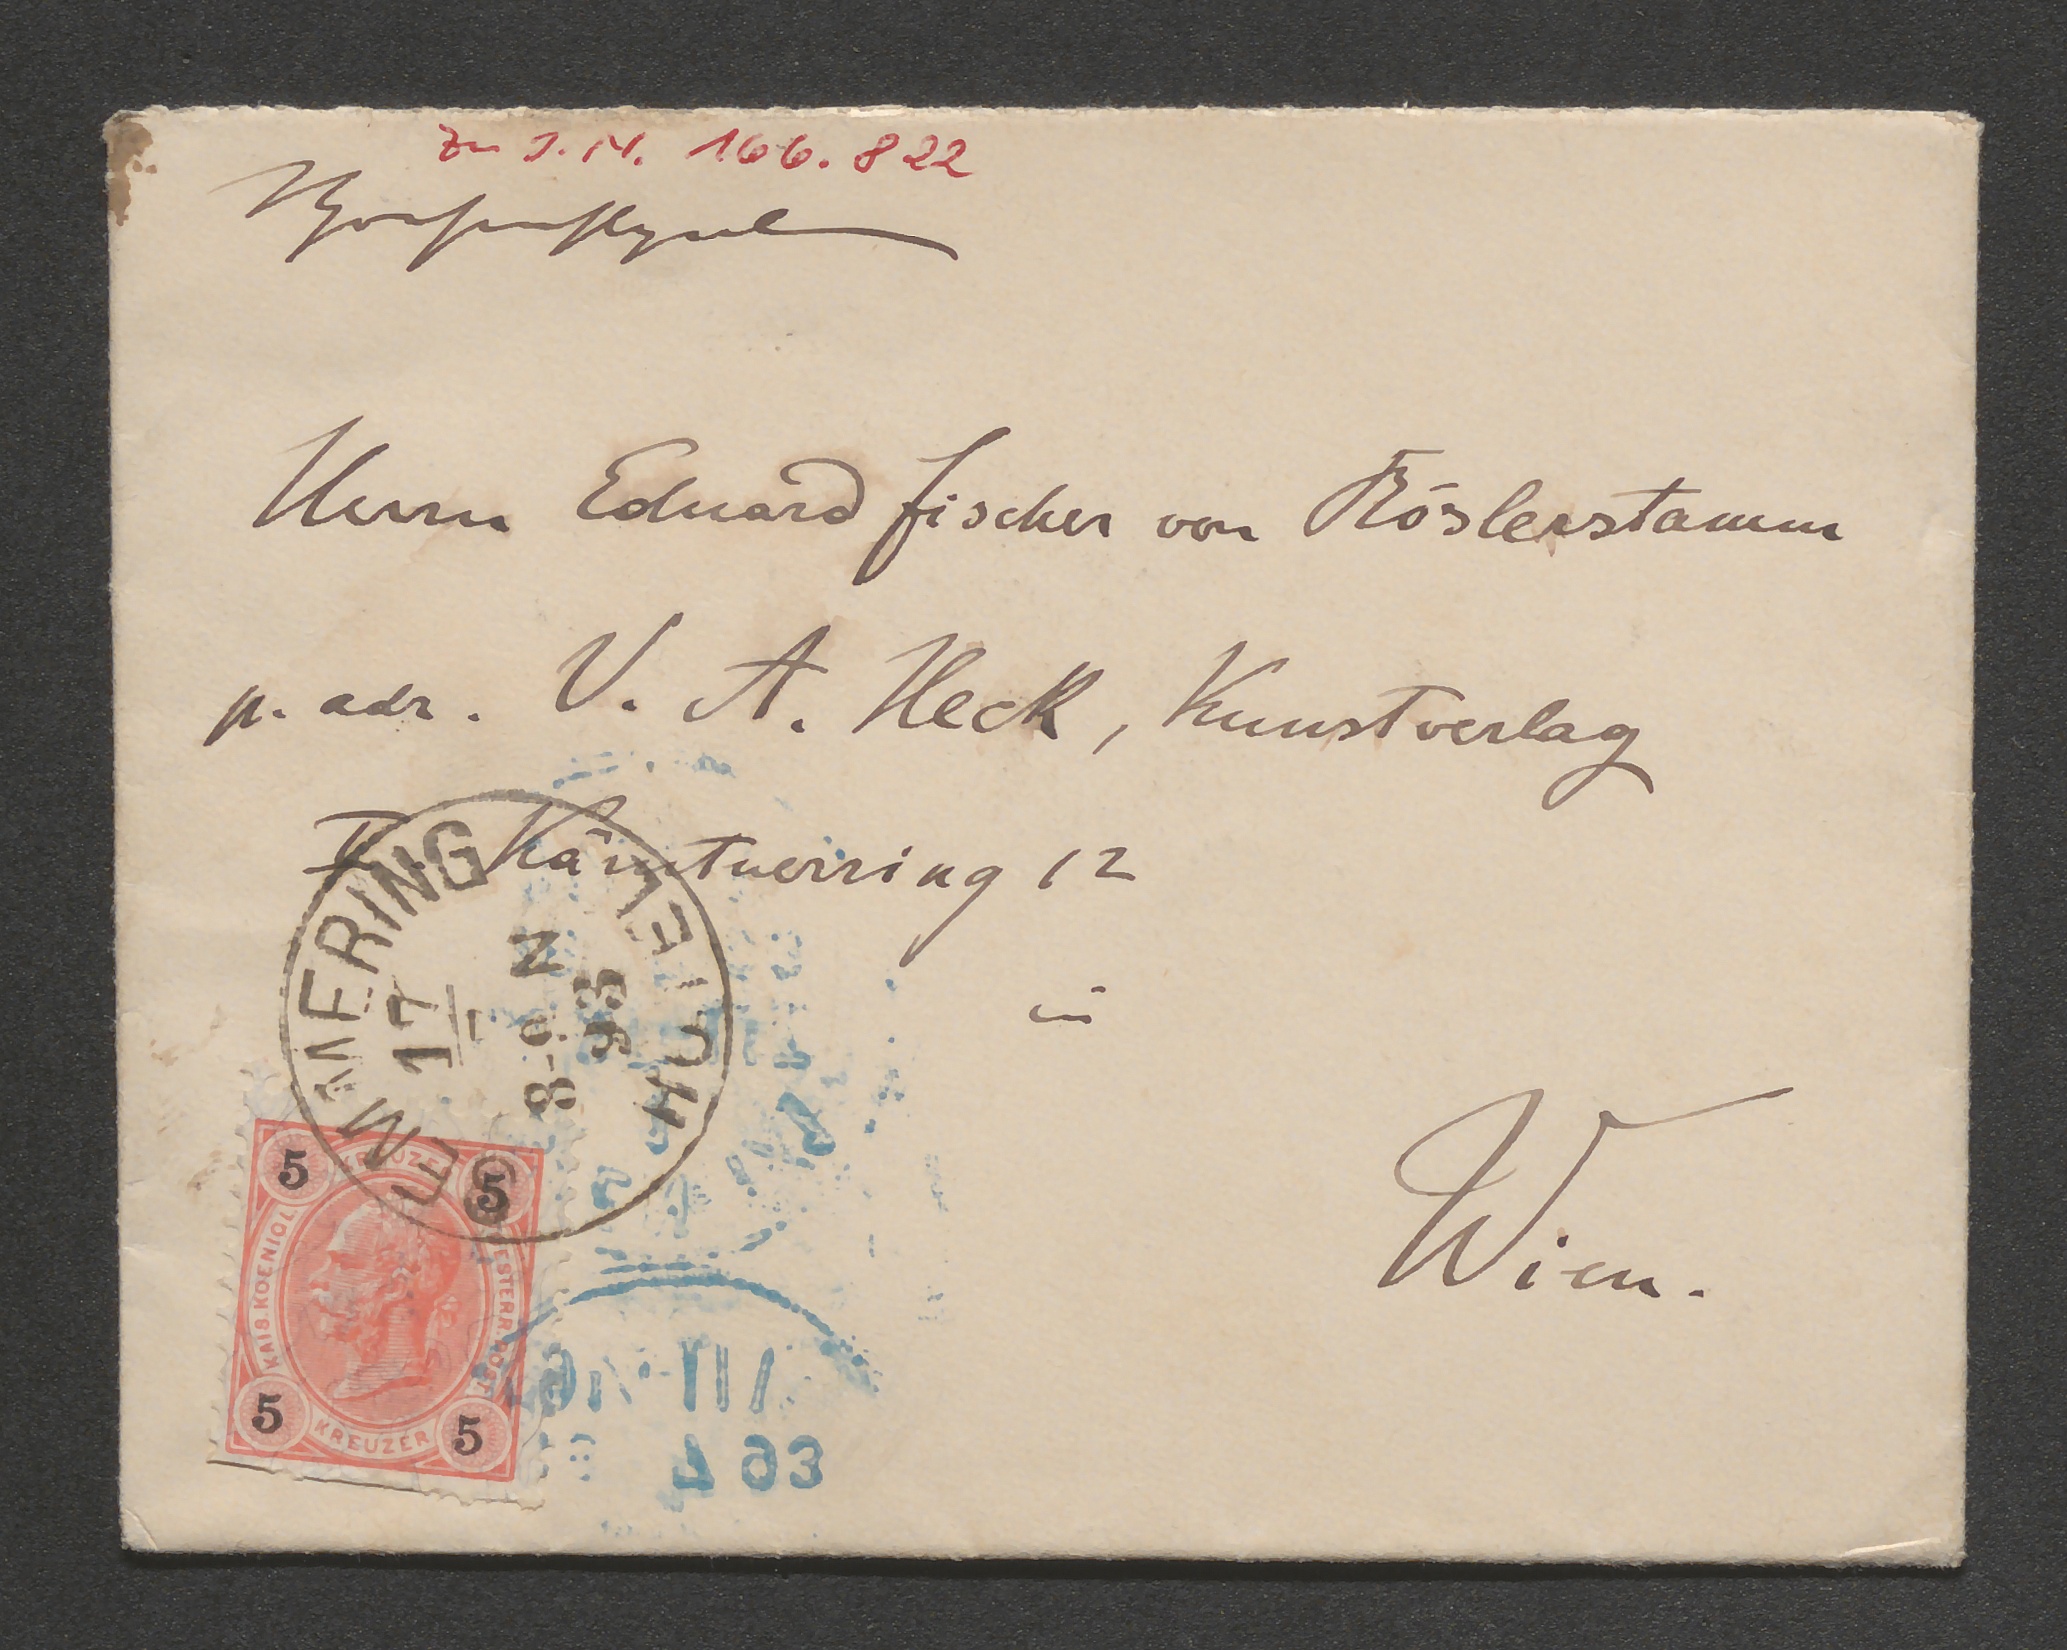 Zu I. N. 166.822
Hochwohlgeb
Herrn Eduard Fischer von Röslerstamm
p. adr. V. A. Heck, Kunstverlag
I Kärntnerring 12
in
Wien.
SEMMERING HÔTEL
17
I
8-9 N
93
KREUZER
5 5
KAIS. KOENIGL. OESTERR. POST
5 5
KREUZER